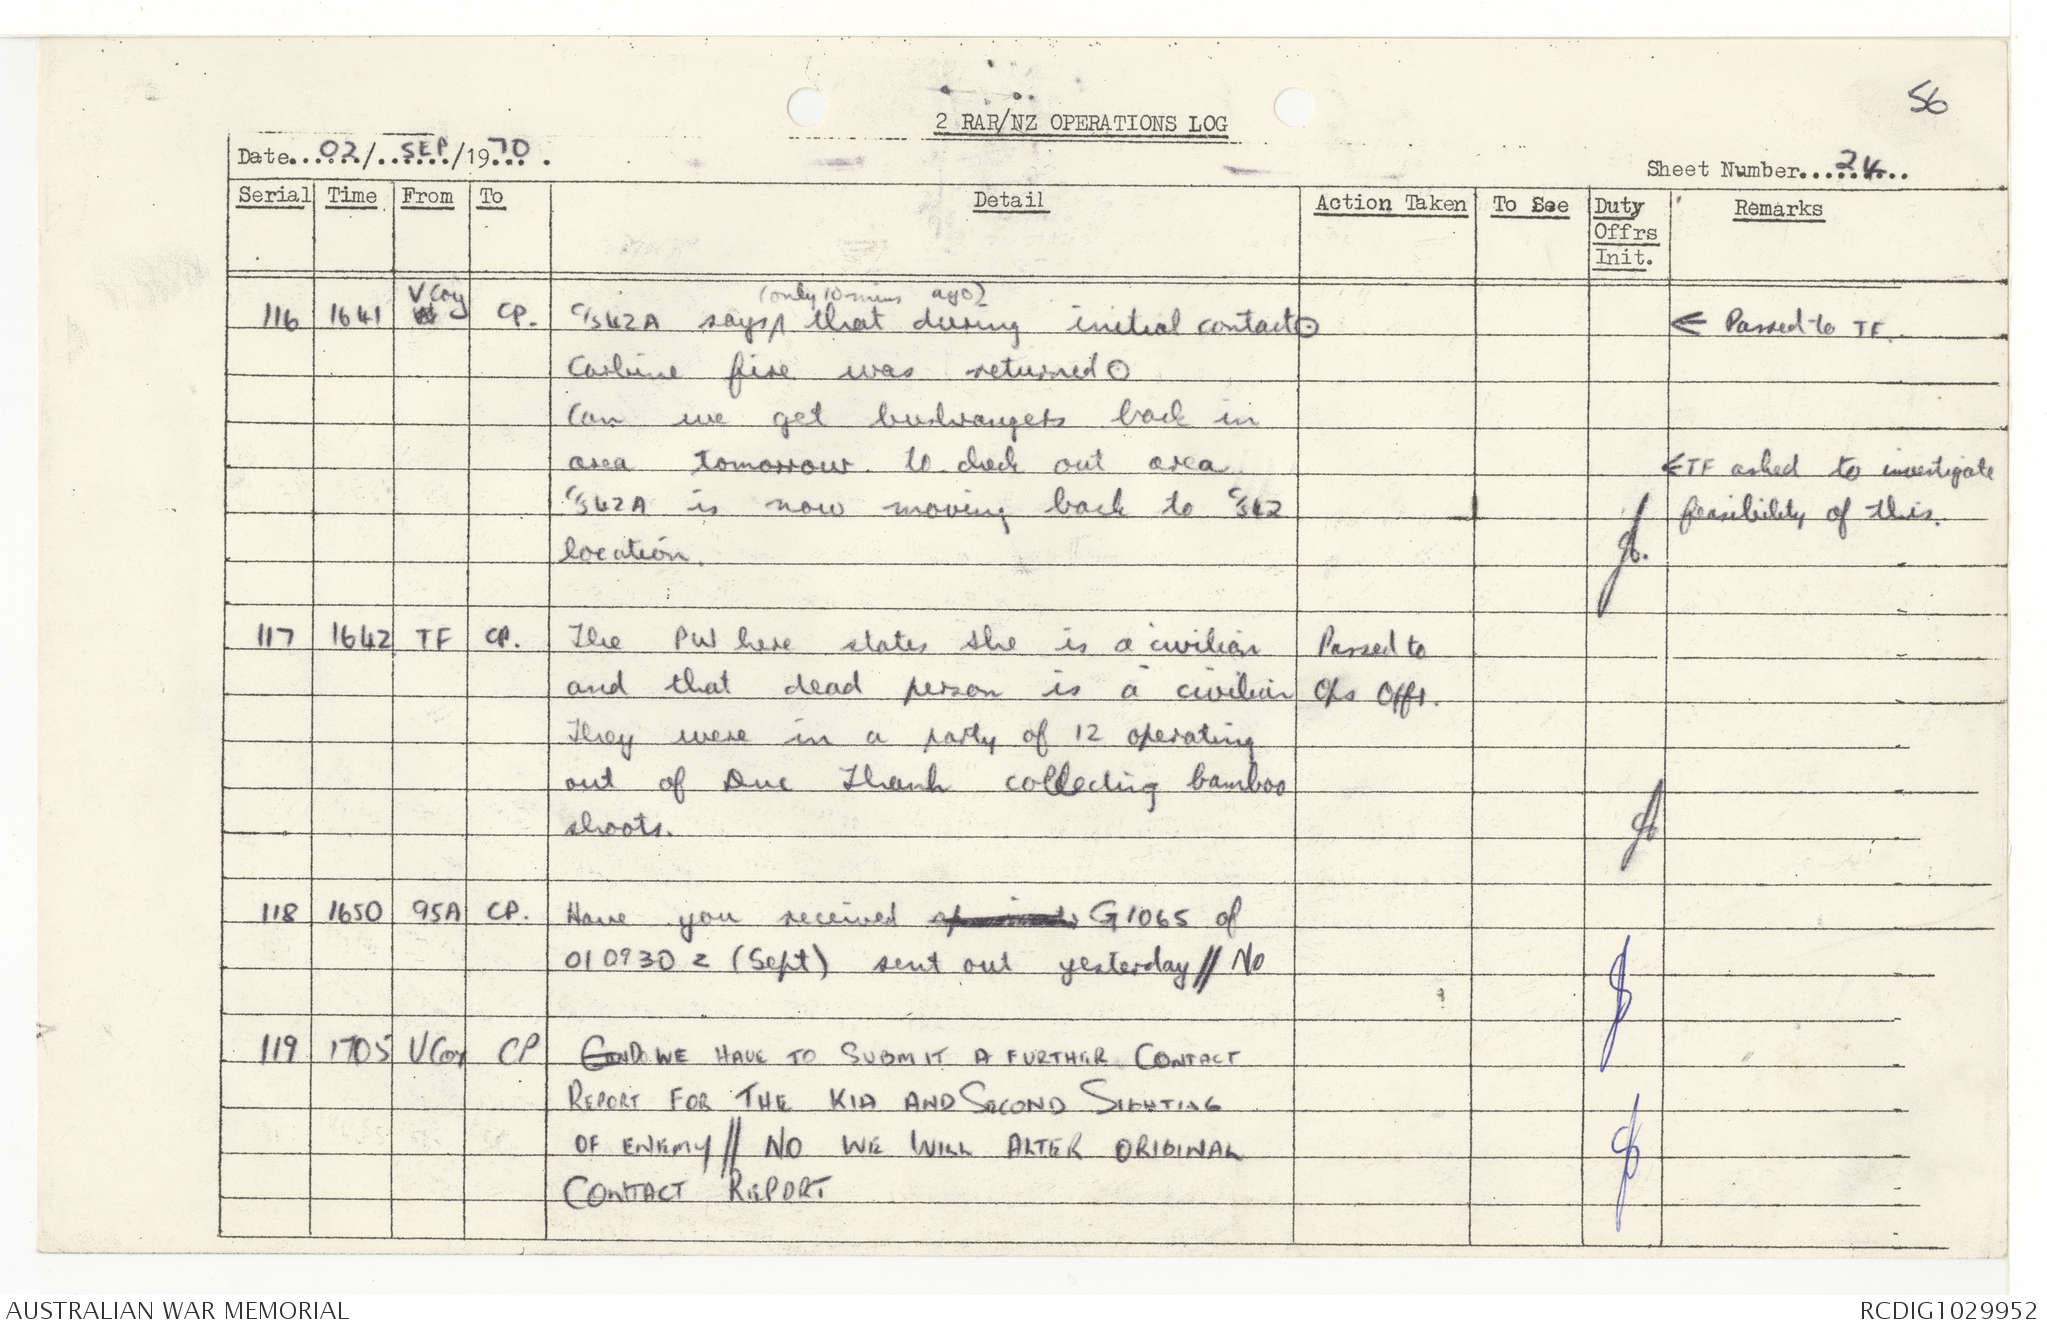 56
2 RAR/NZ OPERATIONS LOG
Date......02/..SEP../1970...
Sheet Number...24....
Serial Time From To Detail Action Taken To See Duty Offrs Init. Remarks
(only 10 mins ago)
116 1641 V Coy CP. C/S 42A says that during initial contact ⊙ ← Passed to TF.
Carbine fire was returned ⊙
Can we get bushrangers back in
area tomorrow to check out area ← TF asked to investigate
C/S 42A is now moving back to C/S 42 feasibility of this.
location.
117 1642 TF CP. The PW here states she is a civilian Passed to
and that dead person is a civilian Ops Offr.
They were in a party of 12 operating
out of Duc Thanh collecting bamboo
shoots.
118 1650 95A CP. Have you received G1065 of
010930z (Sept) sent out yesterday // No
119 1705 V Coy CP DO WE HAVE TO SUBMIT A FURTHER CONTACT
REPORT FOR THE KIA AND SECOND SIGHTING
OF ENEMY // NO WE WILL ALTER ORIGINAL
CONTACT REPORT
AUSTRALIAN WAR MEMORIAL
RCDIG1029952